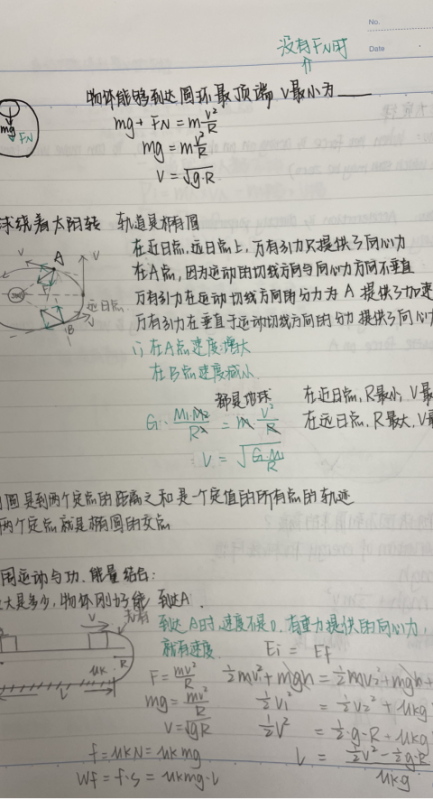 No.
Date
没有FN时
物体能够到达圆环最顶端 V最小为____
mg
FN
mg + FN = m v²/R
mg = m v²/R
V = √g·R
球绕着太阳转 轨道是椭圆
在近日点,远日点上,万有引力只提供了向心力
在A点,因为运动的切线方向与向心力方向不垂直
万有引力在运动切线方向的分力为A提供了加速
万有引力在垂直于运动切线方向的分力提供了向心力
V
A
V
F
远日点
B
在A点速度增大
在B点速度减小
都是地球
G·M₁·M₂/R² = m v²/R
V = √G·M/R
在近日点,R最小,V最
在远日点,R最大,V最
圆是到两个定点的距离之和是一个定值的所有点的轨迹
两个定点就是椭圆的交点
周运动与功、能量结合:
大是多少,物体刚好能到达A.
V
μk
R
L
到达A时,速度不是0,有重力提供的向心力,
就有速度.
Ei = Ef
F = mv²/R
mg = mv²/R
V = √gR
½mv₁² + mgh = ½mv₂² + mgh +
½v₁² = ½v₂² + μkg
½v² = ½·g·R + μkg
L = (½v² - ½·g·R)/μkg
f = μkN = μkmg
Wf = f·s = μkmg·L